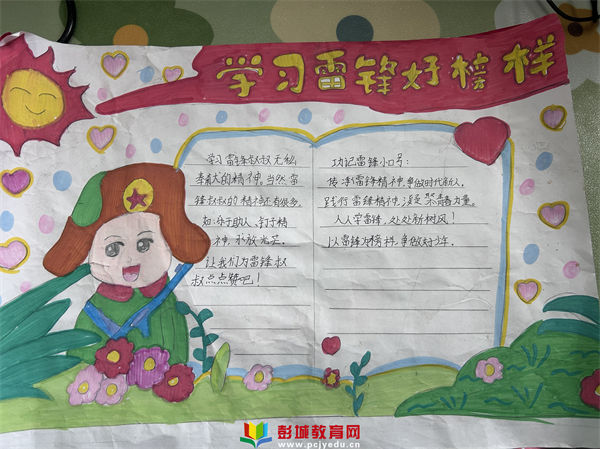 学习雷锋好榜样
学习雷锋叔叔无私
奉献的精神。当然雷
锋叔叔的精神还有很多
如:乐于助人、钉子精
神,永放光芒。
让我们为雷锋叔
叔点点赞吧!
记雷锋小口号:
传承雷锋精神,争做时代新人,
践行雷锋精神,凝聚青春力量。
人人学雷锋,处处新树风!
以雷锋为榜样,争做好少年.
彭城教育网
www.pcjyedu.cn